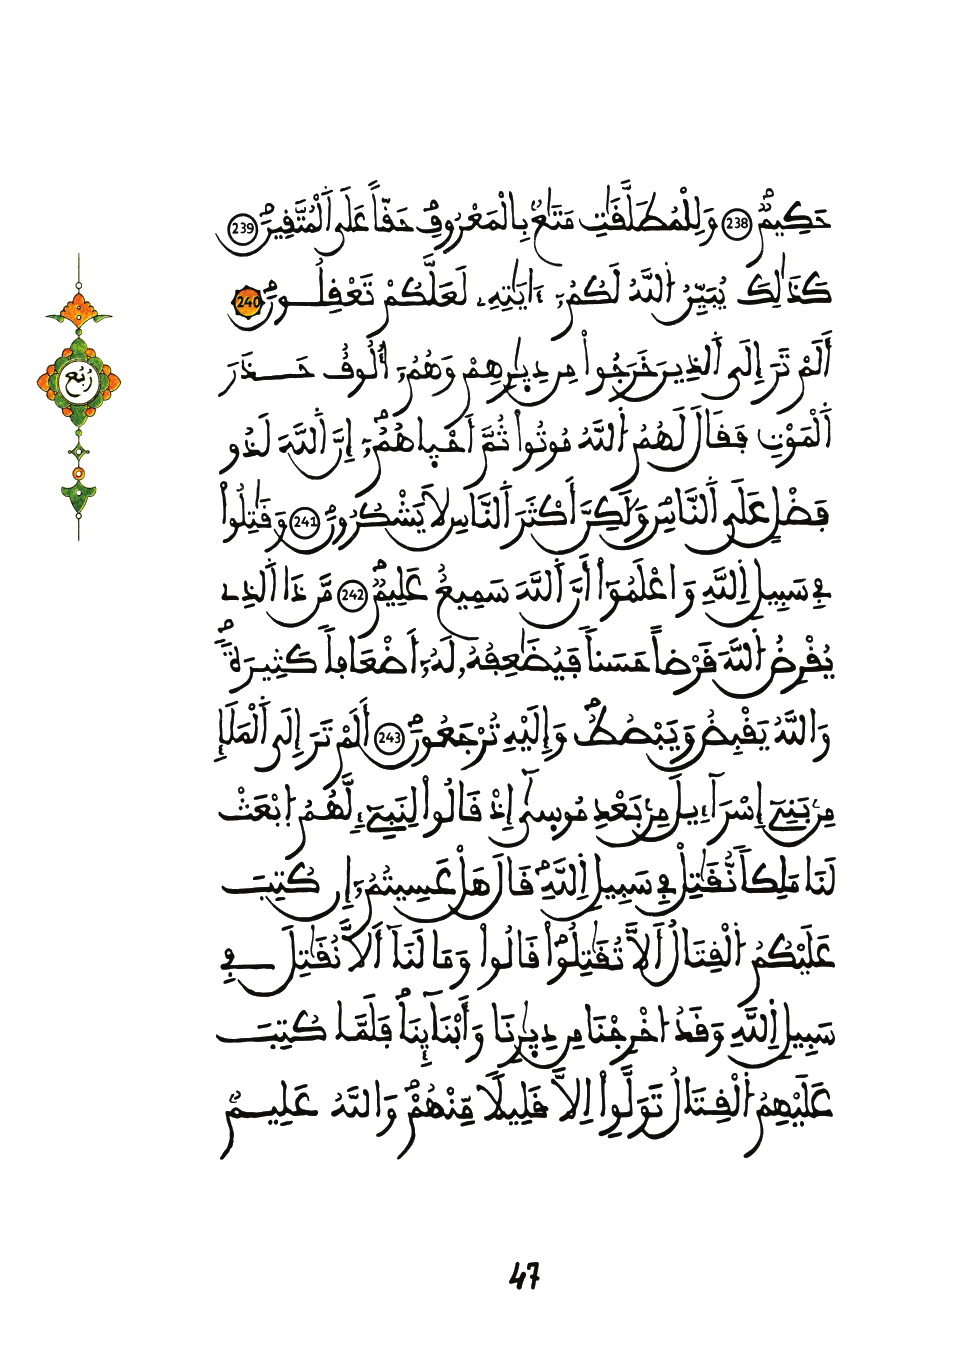 حَكِيمٌ 238 وَلِلْمُطَلَّقَٰتِ مَتَٰعٌۢ بِالْمَعْرُوفِ حَقّاً عَلَى اَ۬لْمُتَّقِينَۖ 239
كَذَٰلِكَ يُبَيِّنُ اُ۬للَّهُ لَكُمُۥٓ ءَايَٰتِهِۦ لَعَلَّكُمْ تَعْقِلُونَۖ 240
أَلَمْ تَرَ إِلَى اَ۬لذِينَ خَرَجُواْ مِن دِيٰ۪رِهِمْ وَهُمُۥٓ أُلُوفٌ حَذَرَ
اَ۬لْمَوْتِ فَقَالَ لَهُمُ اُ۬للَّهُ مُوتُواْ ثُمَّ أَحْي۪اهُمُۥٓۖ إِنَّ اَ۬للَّهَ لَذُو
فَضْلٍ عَلَى اَ۬لنَّاسِۖ وَلَٰكِنَّ أَكْثَرَ اَ۬لنَّاسِ لَا يَشْكُرُونَۖ 241 وَقَٰتِلُواْ
فِے سَبِيلِ اِ۬للَّهِ وَاعْلَمُوٓاْ أَنَّ اَ۬للَّهَ سَمِيعٌ عَلِيمٌۖ 242 مَّن ذَا اَ۬لذِے
يُقْرِضُ اُ۬للَّهَ قَرْضاً حَسَناً فَيُضَٰعِفُهُۥ لَهُۥٓ أَضْعَافاً كَثِيرَةٗۖ
وَاللَّهُ يَقْبِضُ وَيَبْصُطُۖ وَإِلَيْهِ تُرْجَعُونَۖ 243 أَلَمْ تَرَ إِلَى اَ۬لْمَلَإِ
مِنۢ بَنِےٓ إِسْرَآءِيلَ مِنۢ بَعْدِ مُوس۪ىٓ إِذْ قَالُواْ لِنَبِےٓءٍ لَّهُمُ اُ۪بْعَثْ
لَنَا مَلِكاً نُّقَٰتِلْ فِے سَبِيلِ اِ۬للَّهِۖ قَالَ هَلْ عَسِيتُمُۥٓ إِن كُتِبَ
عَلَيْكُمُ اُ۬لْقِتَالُ أَلَّا تُقَٰتِلُواْۖ قَالُواْ وَمَا لَنَآ أَلَّا نُقَٰتِلَ فِے
سَبِيلِ اِ۬للَّهِ وَقَدُ ا۟خْرِجْنَا مِن دِيٰ۪رِنَا وَأَبْنَآئِنَاۖ فَلَمَّا كُتِبَ
عَلَيْهِمُ اُ۬لْقِتَالُ تَوَلَّوِاْ اِلَّا قَلِيلاً مِّنْهُمْۖ وَاللَّهُ عَلِيمٌۢ
رُبُع
47